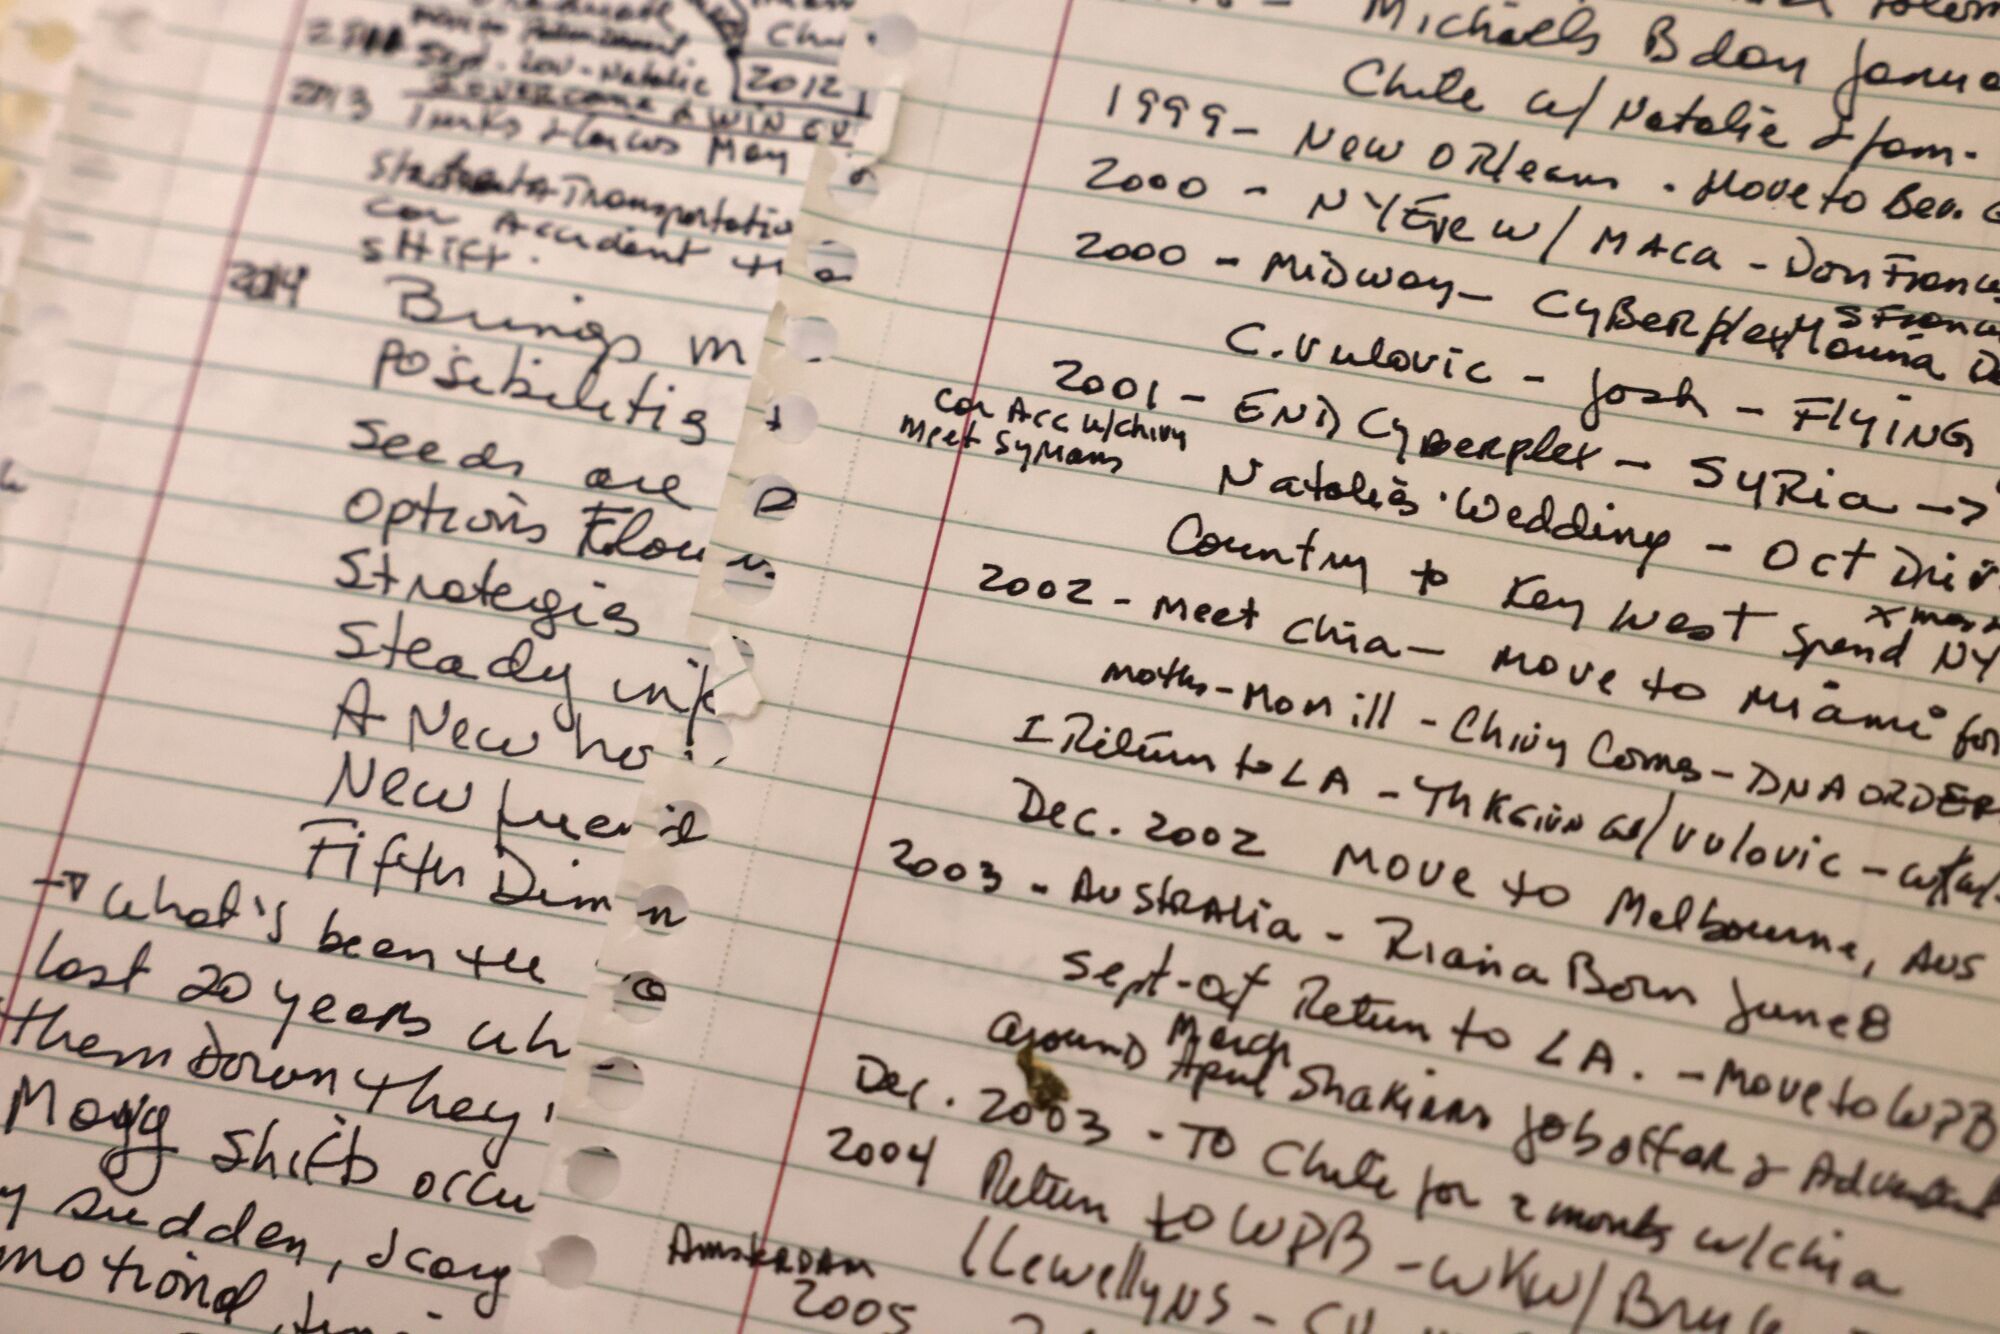 2012
2013 Turks & Caicos May
Transportatio
Car Accident
SHIFT.
2014 Brings m
Possibilities
seeds are
options Flow
Strategies
Steady
A New ho
New
Fifth Dim
What's been the
last 20 years wh
them down they
Mayy shifts occu
sudden, scary
motional
Michaels B day Janua
Chile w/ Natalie & fam.
1999 - New ORleans. Move to Bev.
2000 - NYEve w/ MACA - Don Franc
2000 - MiDway - CyBerplex
C. Vulovic - Josh - FLyiNG
2001 - END Cyberplex - SYRia ->
Car Acc w/ Chivy
Meet Symans
Natalie's Wedding - Oct Driv
Country to Key West Spend NY
xmas
2002 - Meet Chia - Move to Miami for
Mom ill - Chivy Comes - DNA ORDER
I Return to LA - w/ Vulovic -
Dec. 2002 Move to Melbourne, AUS
2003 - AuSTRAlia - Riana Born June 8
Sept-Oct Return to LA. - Move to WPB
around March
April Shakiras Job offer &
Dec. 2003 - To Chile for 2 months w/Chia
2004 Return to WPB - WKW/
Llewellyns -
AmsterDAM
2005